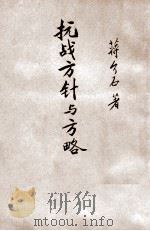 蒋介石 著
抗战方针与方略